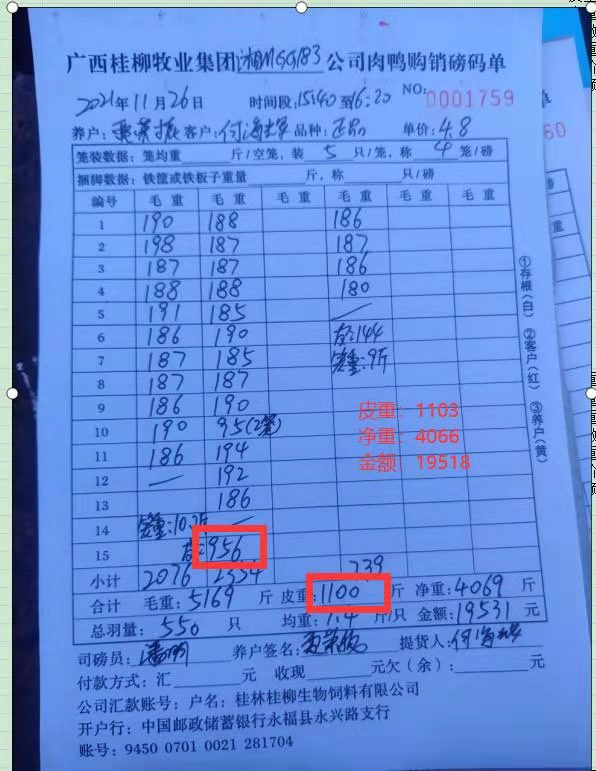 广西桂柳牧业集团湘MSG183公司肉鸭购销磅码单
2021年11月26日 时间段:15:40到16:20 NO:0001759
养户: 客户:何海 品种:正品 单价:4.8
笼装数据:笼均重 斤/空笼,装5只/笼,称4笼/磅
捆脚数据:铁筐或铁板子重量 斤,称 只/磅
编号 毛重 毛重 毛重 毛重 毛重 毛重
1 190 188 186
2 198 187 187
3 187 187 186
4 188 188 180
5 191 185 —
6 186 190 144
7 187 185 笼重:9斤
8 187 187
9 186 190
10 190 95(2笼)
11 186 194
12 — 192
13 186
14 笼重:10.2斤 —
15 956
小计 2076 2354 739
皮重:1103
净重:4066
金额:19518
合计 毛重:5169斤 皮重:1100斤 净重:4069斤
总羽量:550只 均重:7.4斤/只 金额:19531元
司磅员: 养户签名: 提货人:何海
付款方式:汇 元 收现 元欠(余): 元
公司汇款账号:户名:桂林桂柳生物饲料有限公司
开户行:中国邮政储蓄银行永福县永兴路支行
账号:9450 0701 0021 281704
①存根(白) ②客户(红) ③养户(黄)
单
60
重